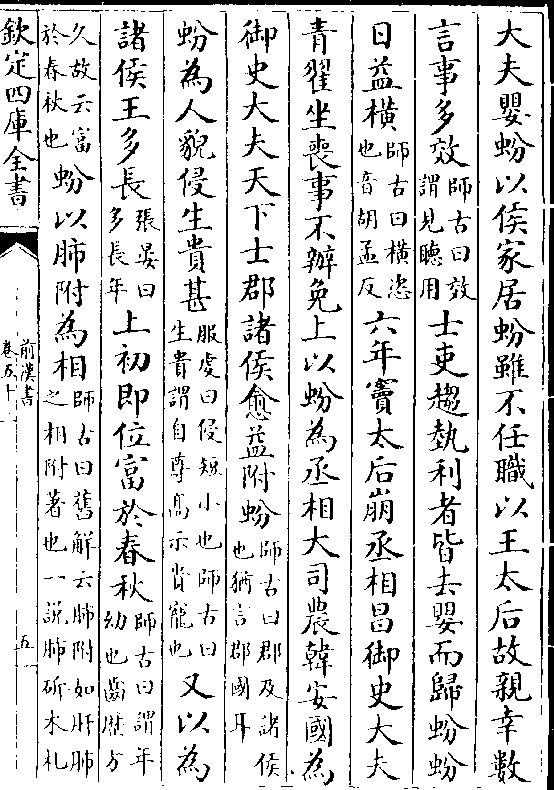 大夫嬰蚡以侯家居蚡雖不任職以王太后故親幸數
言事多效師古曰效謂見聽用士吏趨埶利者皆去嬰而歸蚡蚡
日益橫師古曰橫恣也音胡孟反六年竇太后崩丞相昌御史大夫
青翟坐喪事不辦免上以蚡為丞相大司農韓安國為
御史大夫天下士郡諸侯愈益附蚡師古曰郡及諸侯也猶言郡國耳
蚡為人貌侵生貴甚服虔曰侵短小也師古曰生貴謂自尊高示貴寵也又以為
諸侯王多長張晏曰多長年上初即位富於春秋師古曰謂年幼也齒歷方
久故云富於春秋也蚡以肺附為相師古曰舊解云肺附如肝肺之相附著也一說肺斫木札
欽定四庫全書
前漢書
卷五十
五